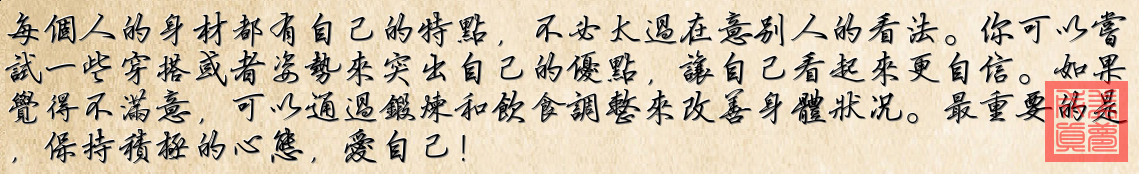 每個人的身材都有自己的特點，不必太過在意別人的看法。你可以嘗
試一些穿搭或者姿勢來突出自己的優點，讓自己看起來更自信。如果
覺得不滿意，可以通過鍛煉和飲食調整來改善身體狀況。最重要的是
，保持積極的心態，愛自己！